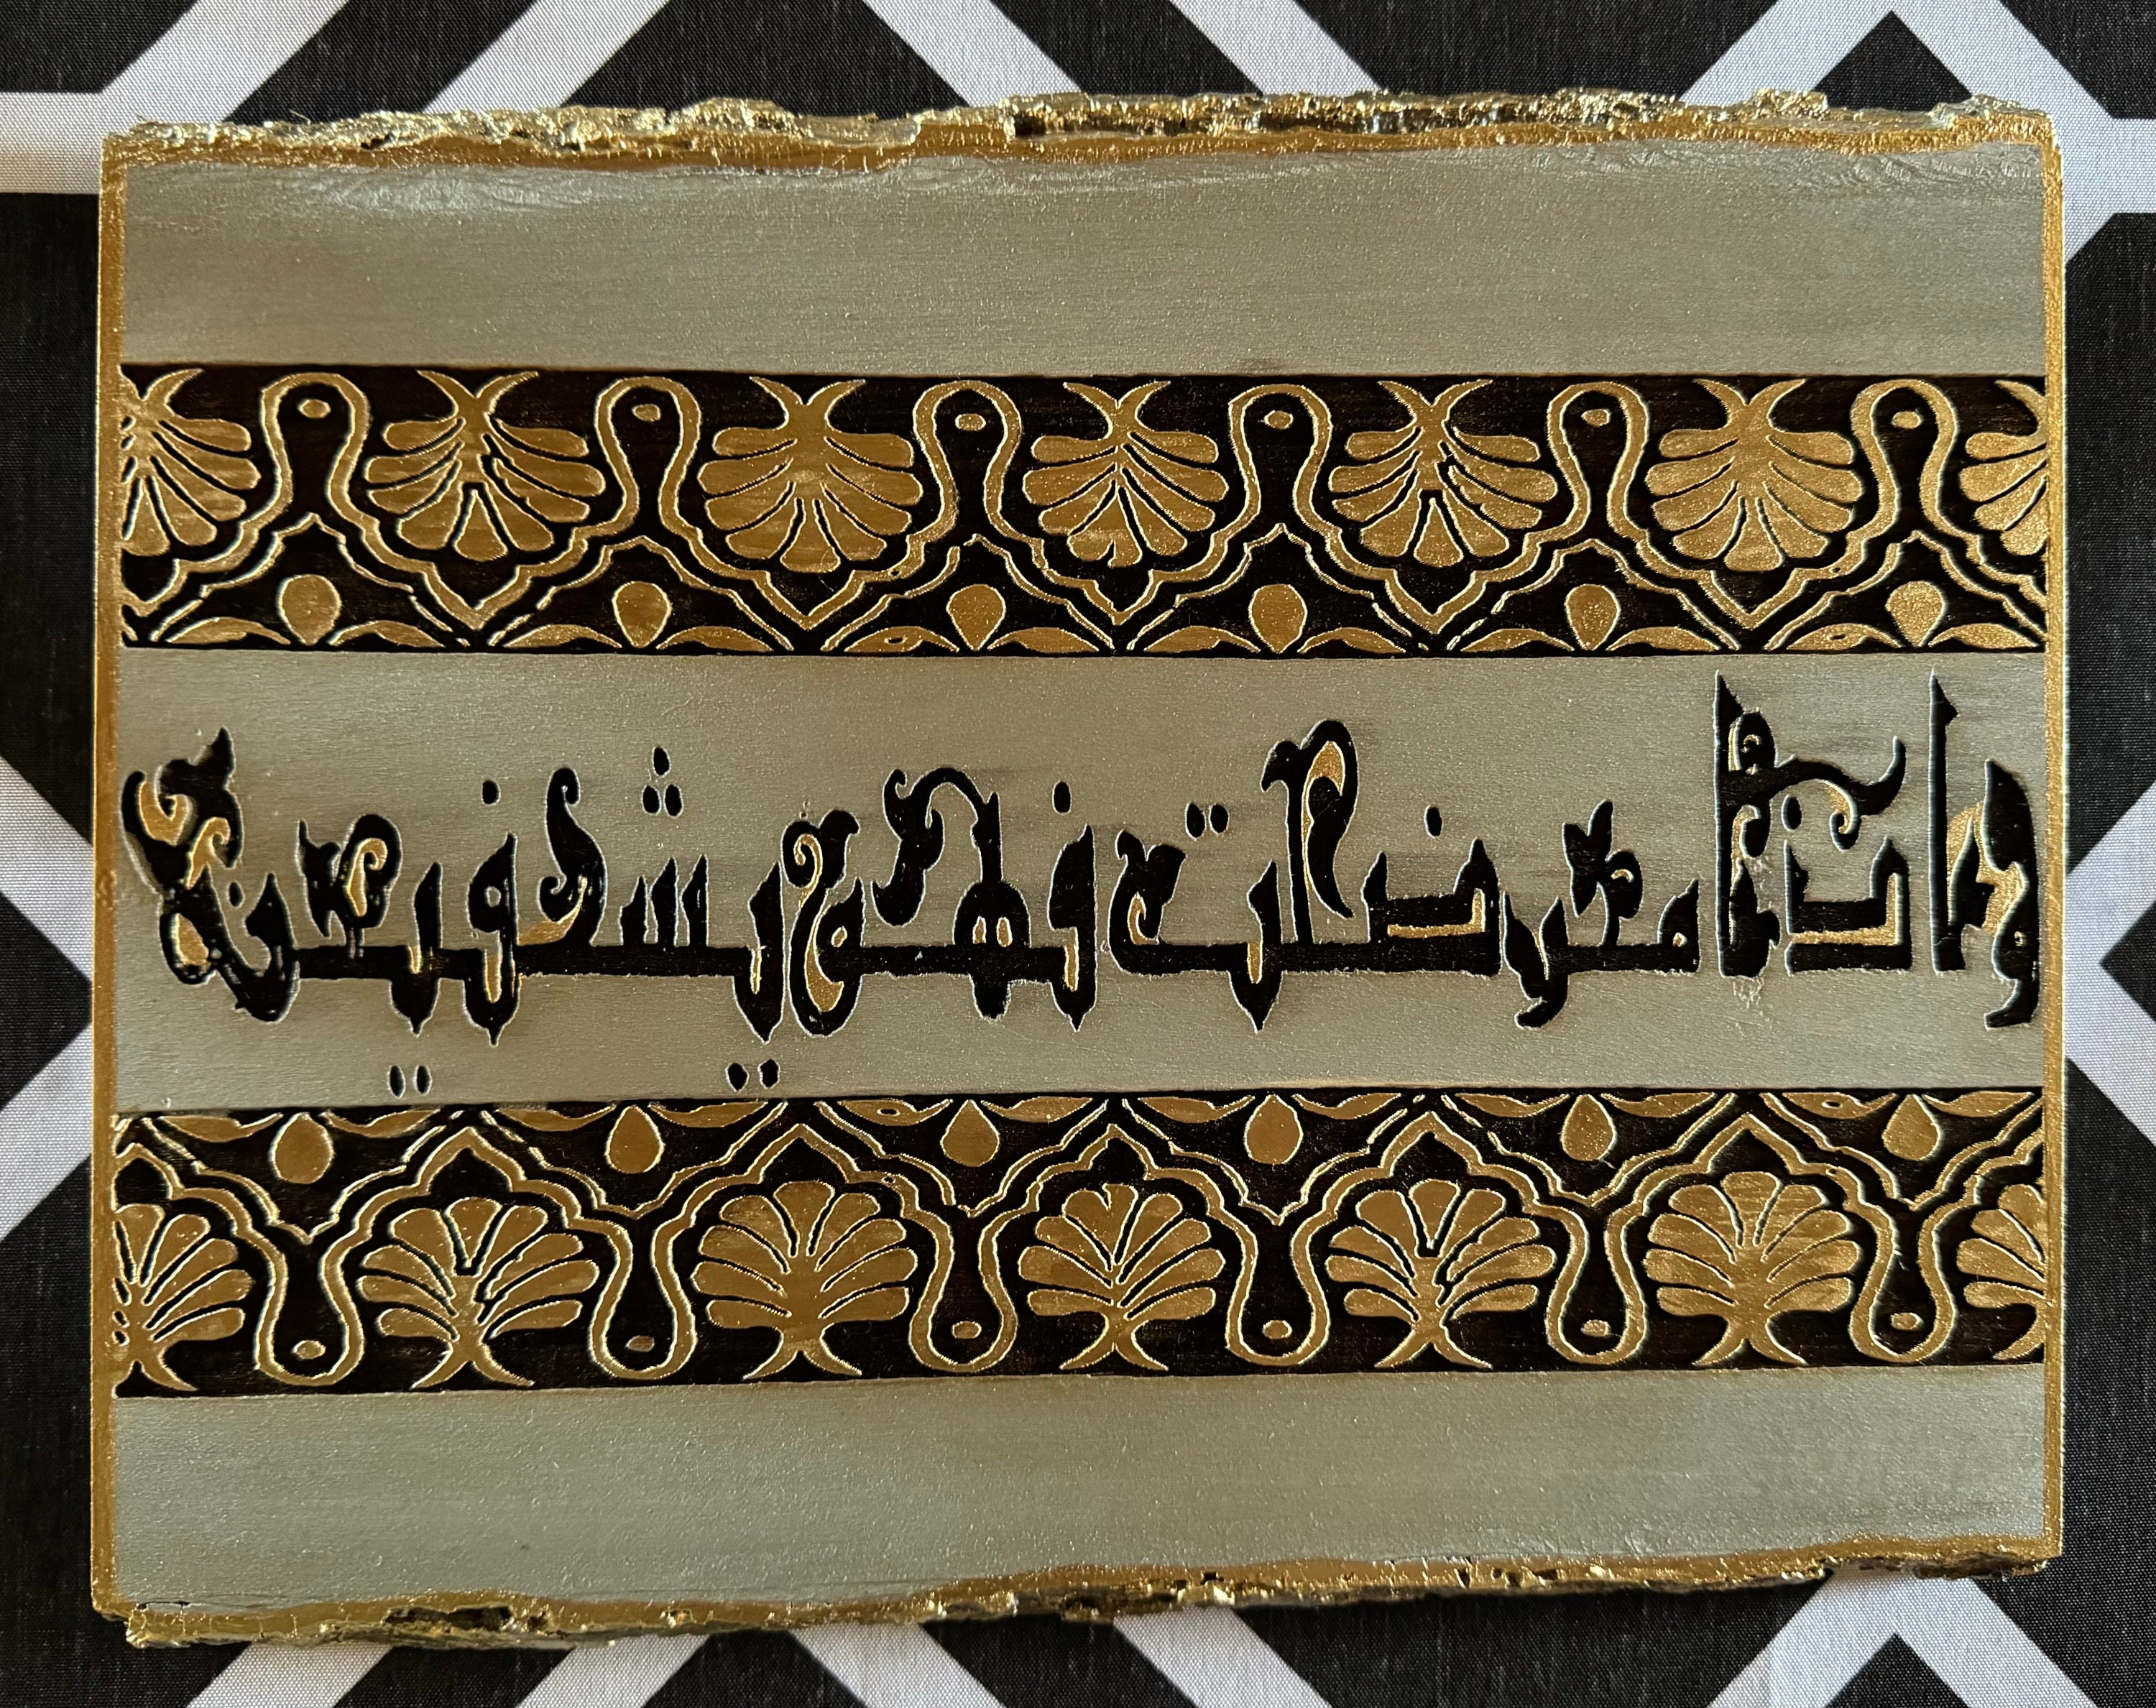 واذا مرضت فهو يشفين